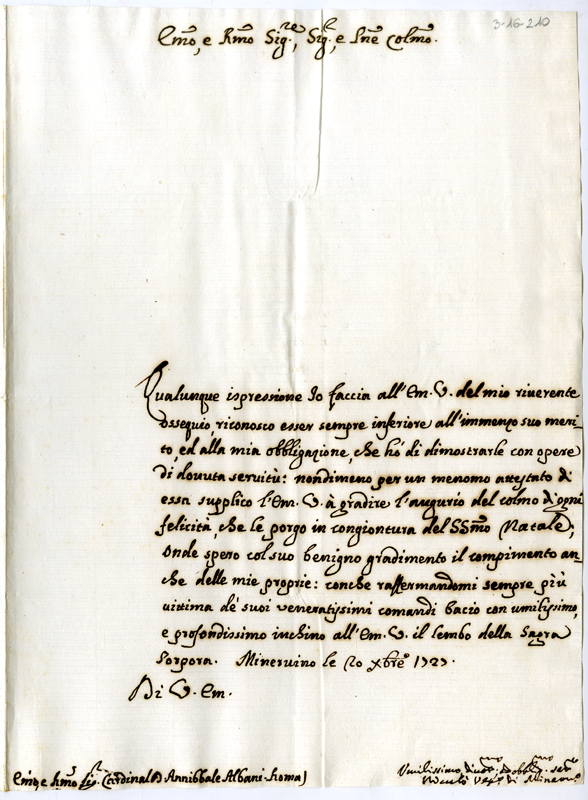 3-16-210
Emo, e Rmo Sig.re, Sig.r, e Pne Colmo.
Qualunque ispressione Io faccia all'Em. V. del mio riuerente
ossequio, riconosco esser sempre inferiore all'immenso suo meri-
to, ed alla mia obbligazione, che hò di dimostrarle con opere
di douuta seruitù: nondimeno per un menomo attestato di
essa supplico l'Em. V. à gradire l'augurio del colmo d'ogni
felicità, che le porgo in congiontura del SSmo Natale;
Onde spero col suo benigno gradimento il compimento an-
che delle mie proprie: conche raffermandomi sempre più
uittima de' suoi veneratissimi comandi bacio con umilissimo,
e profondissimo inchino all'Em. V. il lembo della Sagra
Porpora. Mineruino le 20 Xbre 1723.
Di V. Em.
Emo, e Rmo Sig.r Cardinal D. Annibbale Albani. Roma)
Vmilissimo, Diuot. ed obbl. ser.
Nicolò Vesc. di Mineru.o